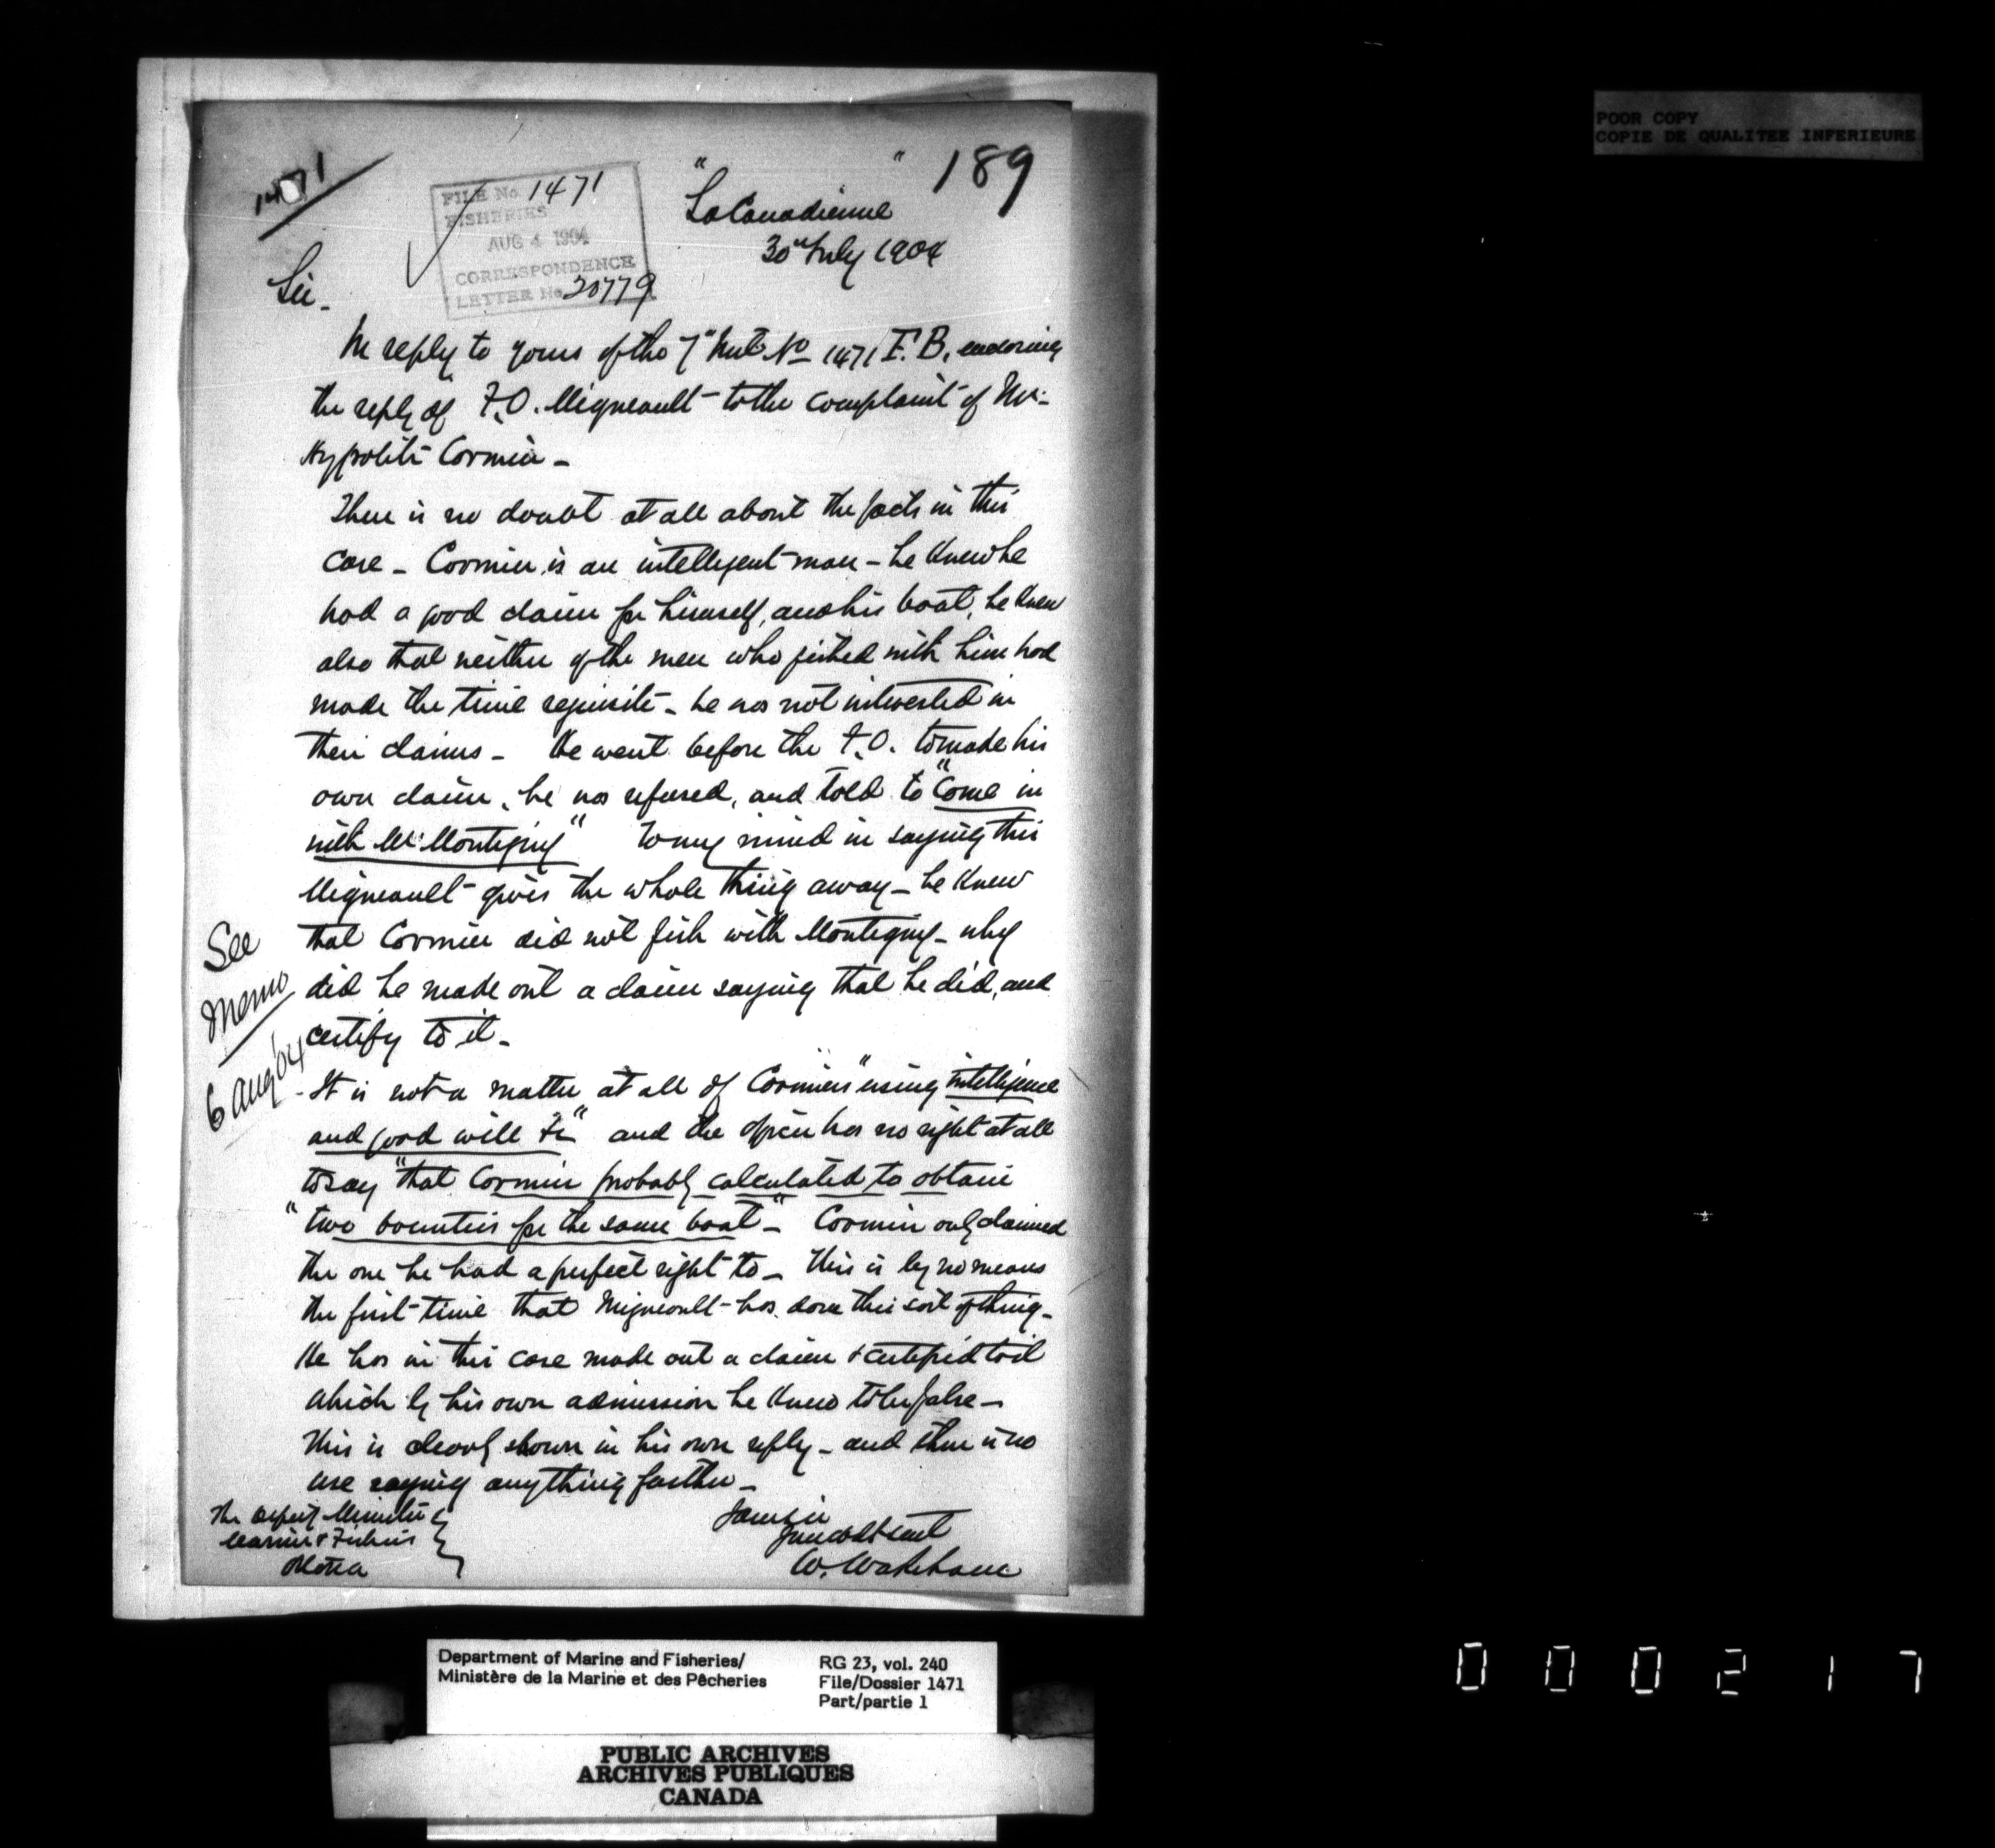 POOR COPY
COPIE DE QUALITEE INFERIEURE
1471
189
FILE No. 1471
FISHERIES
AUG 4 1904
CORRESPONDENCE
LETTER No. 20779
"La Canadienne"
30th July 1904
Sir_
In reply to yours of the 7" Inst No 1471 F.B. enclosing
the reply of F.O. Migneault to the complaint of Mr.
Hypolite Cormier_
There is no doubt at all about the facts in this
case_ Cormier is an intelligent man_ he knew he
had a good claim for himself, and his boat, he knew
also that neither of the men who fished with him had
made the time requisite_ he was not interested in
their claims_ He went before the F.O. to made his
own claim, he was refused, and told to "Come in
with Mr Montigny" To my mind in saying this
Migneault gives the whole thing away_ he knew
that Cormier did not fish with Montigny_ why
did he made out a claim saying that he did, and
certify to it_
See
Memo
6 Aug '04
- It is not a matter at all of Cormier's "using intelligence
and good will &c" and the officer has no right at all
to say "that Cormier probably calculated to obtain
"two bounties for the same boat"_ Cormier only claimed
the one he had a perfect right to_ This is by no means
the first time that Migneault has done this sort of thing_
He has in this case made out a claim & certified to it
which by his own admission he knew to be false_
This is clearly shown in his own reply_ and there is no
use saying anything further_
I am sir
Your obdt servt
W. Wakeham
The Deputy Minister
Marine & Fisheries
Ottawa
Department of Marine and Fisheries/
Ministère de la Marine et des Pêcheries
RG 23, vol. 240
File/Dossier 1471
Part/partie 1
PUBLIC ARCHIVES
ARCHIVES PUBLIQUES
CANADA
000217